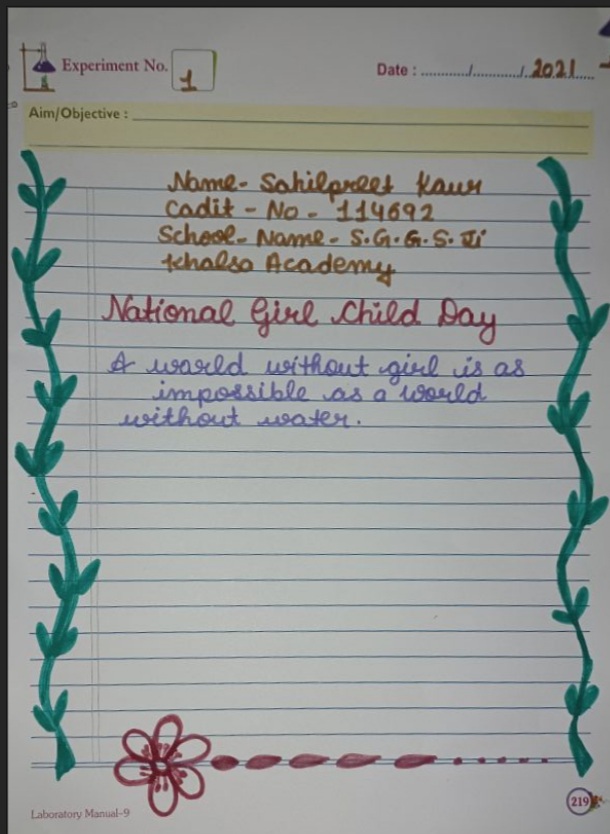 Experiment No. 1
Date : ............/............/.2021....
Aim/Objective :
Name- Sahilpreet Kaur
Cadit - No - 114692
School- Name - S.G.G.S. Ji
Khalsa Academy
National Girl Child Day
A warld without girl is as
impossible as a world
without water.
219
Laboratory Manual-9